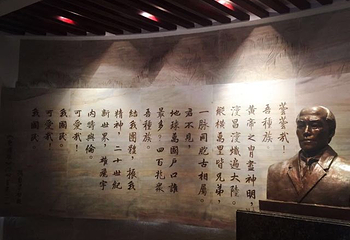 芸芸哉！
吾種族。
黃帝之冑盡神明，
浸昌浸熾遍大陸。
縱橫萬里皆兄弟，
一脈同胞古相屬。
君不見，
地球萬國戶口誰
最多，四百兆眾
吾種族。
結我團體，振我
精神，二十世紀
新世界，雄飛宇
內疇與倫。
可愛哉！
我國民。
可愛哉！
我國民。